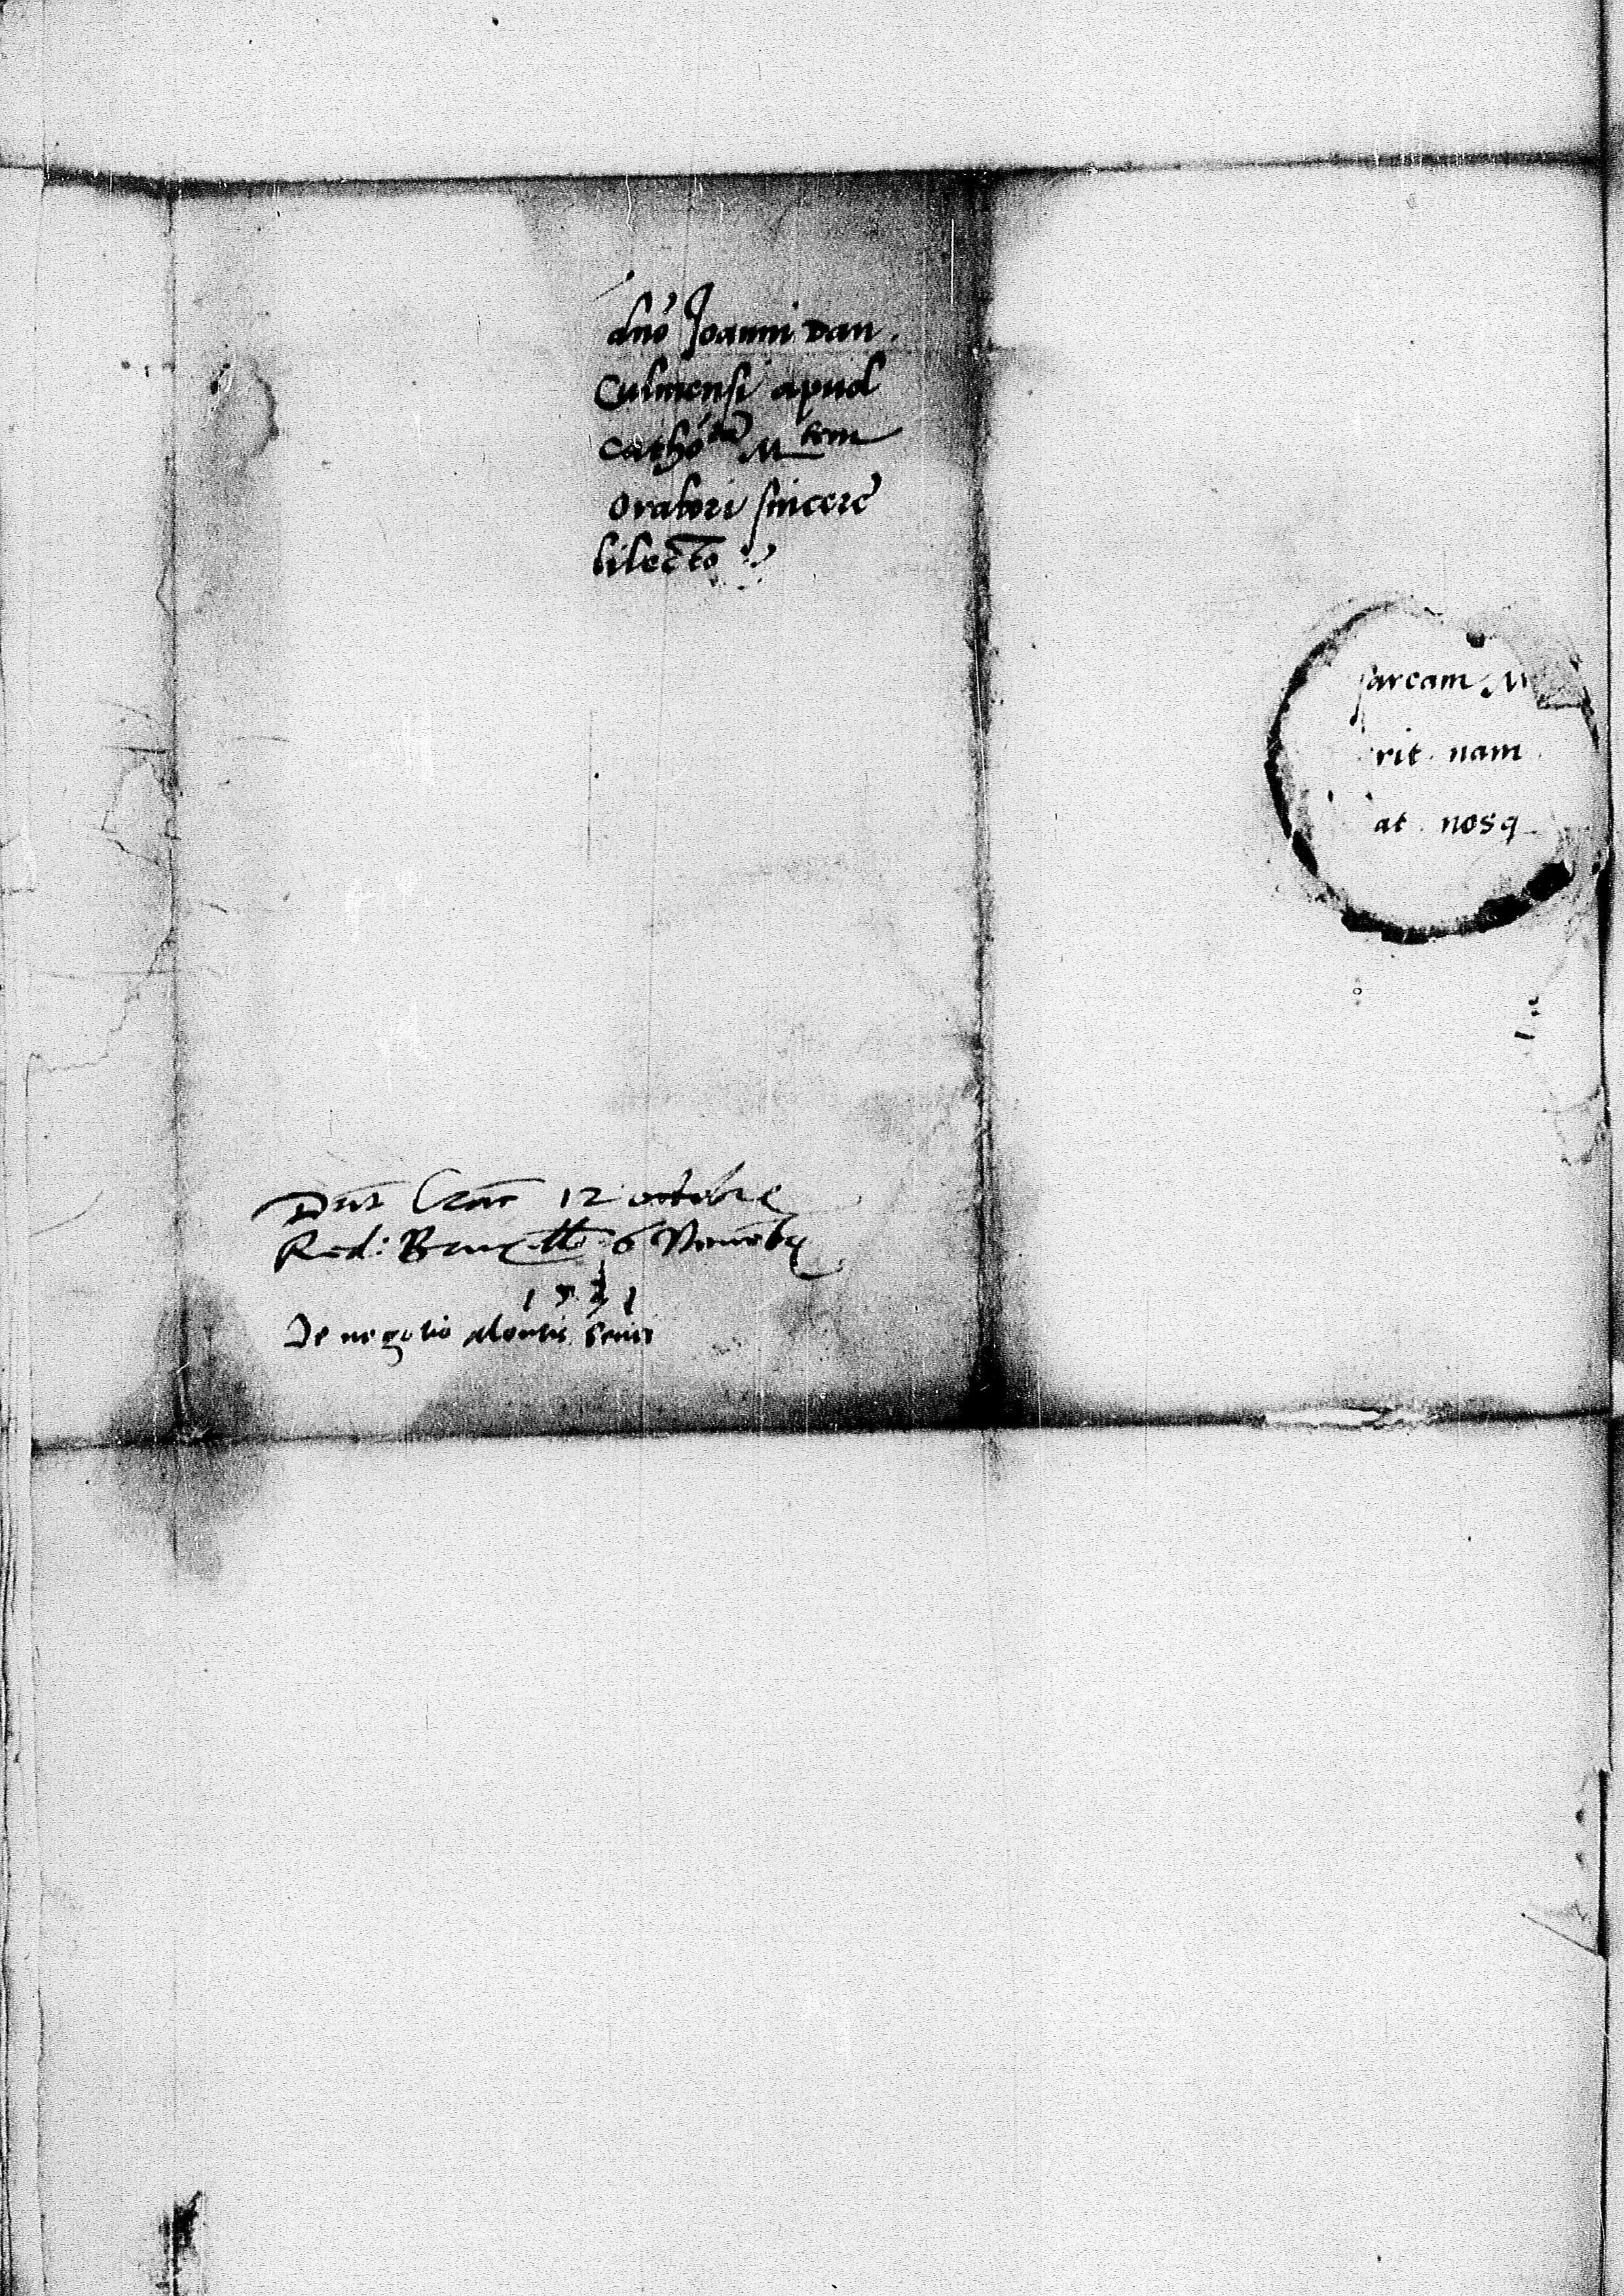 dno Joanni Dan
Culmensi apud
Catho cam M tem
Oratori sincere
dilecto
parcam M
rit nam
at nosq
Dat Crac 12 octobr
Red: Bruxelle 6 Novemb
1531
De negotio